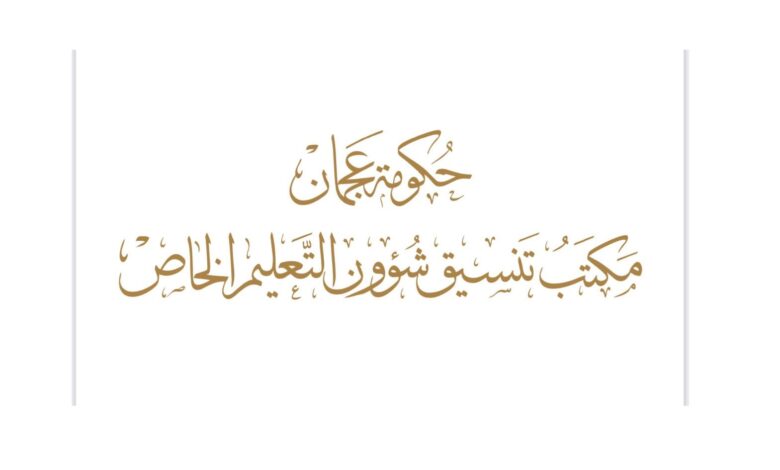 حُكومة عَجمان
مَكتَبُ تَنسيق شُؤون التَّعليم الخاص